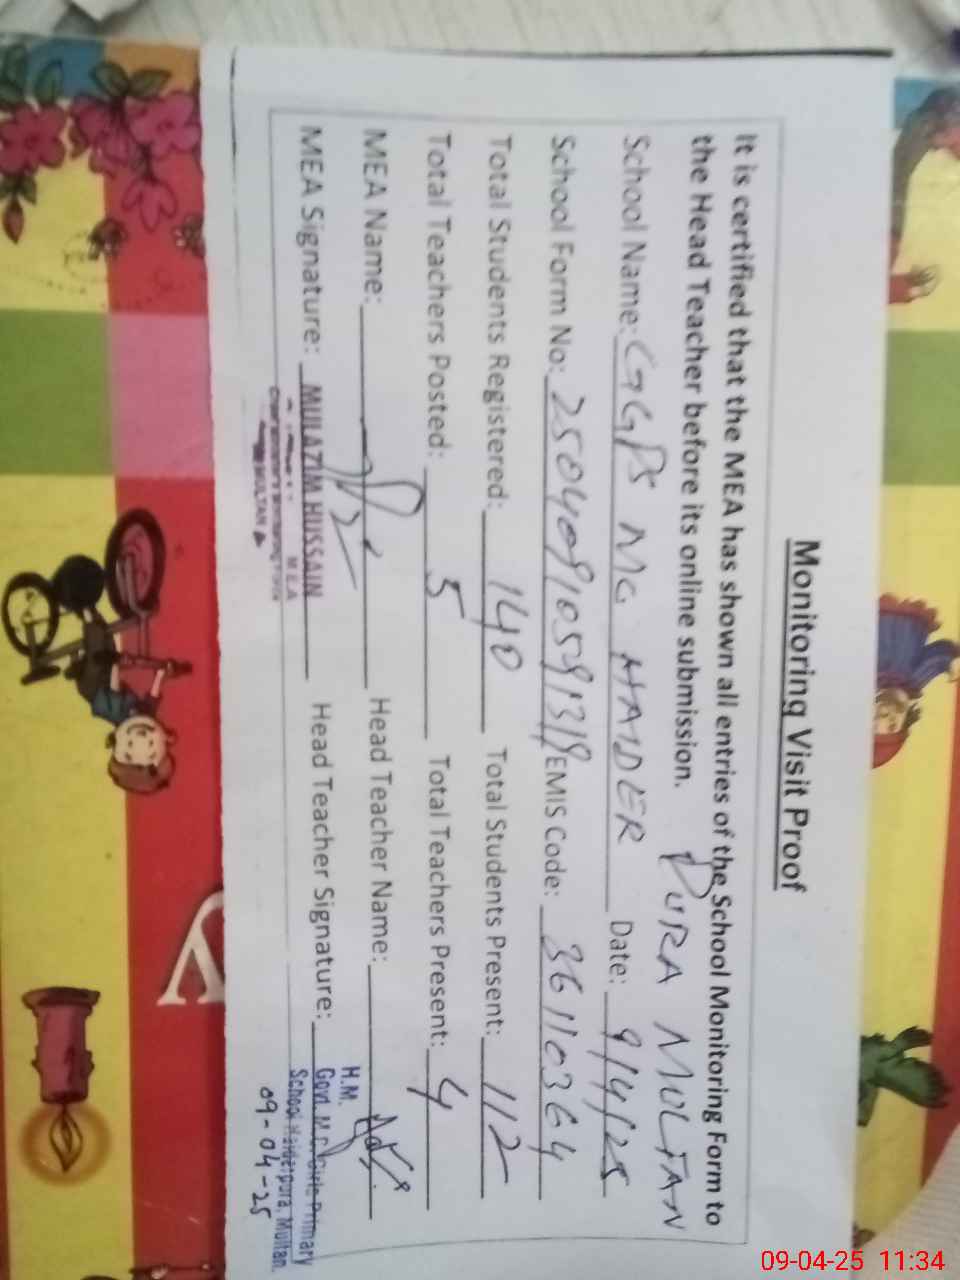 Monitoring Visit Proof
It is certified that the MEA has shown all entries of the School Monitoring Form to
the Head Teacher before its online submission.
PURA MULTAN
School Name: GGPS MC HAIDER Date: 9/4/25
School Form No: 25040910591319 EMIS Code: 36110364
Total Students Registered: 140 Total Students Present: 112
Total Teachers Posted: 5 Total Teachers Present: 4
MEA Name: Head Teacher Name:
MEA Signature: MULAZIM HUSSAIN Head Teacher Signature:
M.E.A
MULTAN
H.M.
Govt. M.C. Girls Primary
School Haiderpura, Multan.
09-04-25
09-04-25 11:34